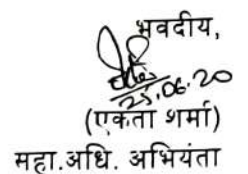 भवदीय,
25.06.20
(एकता शर्मा)
सहा.अधि. अभियंता